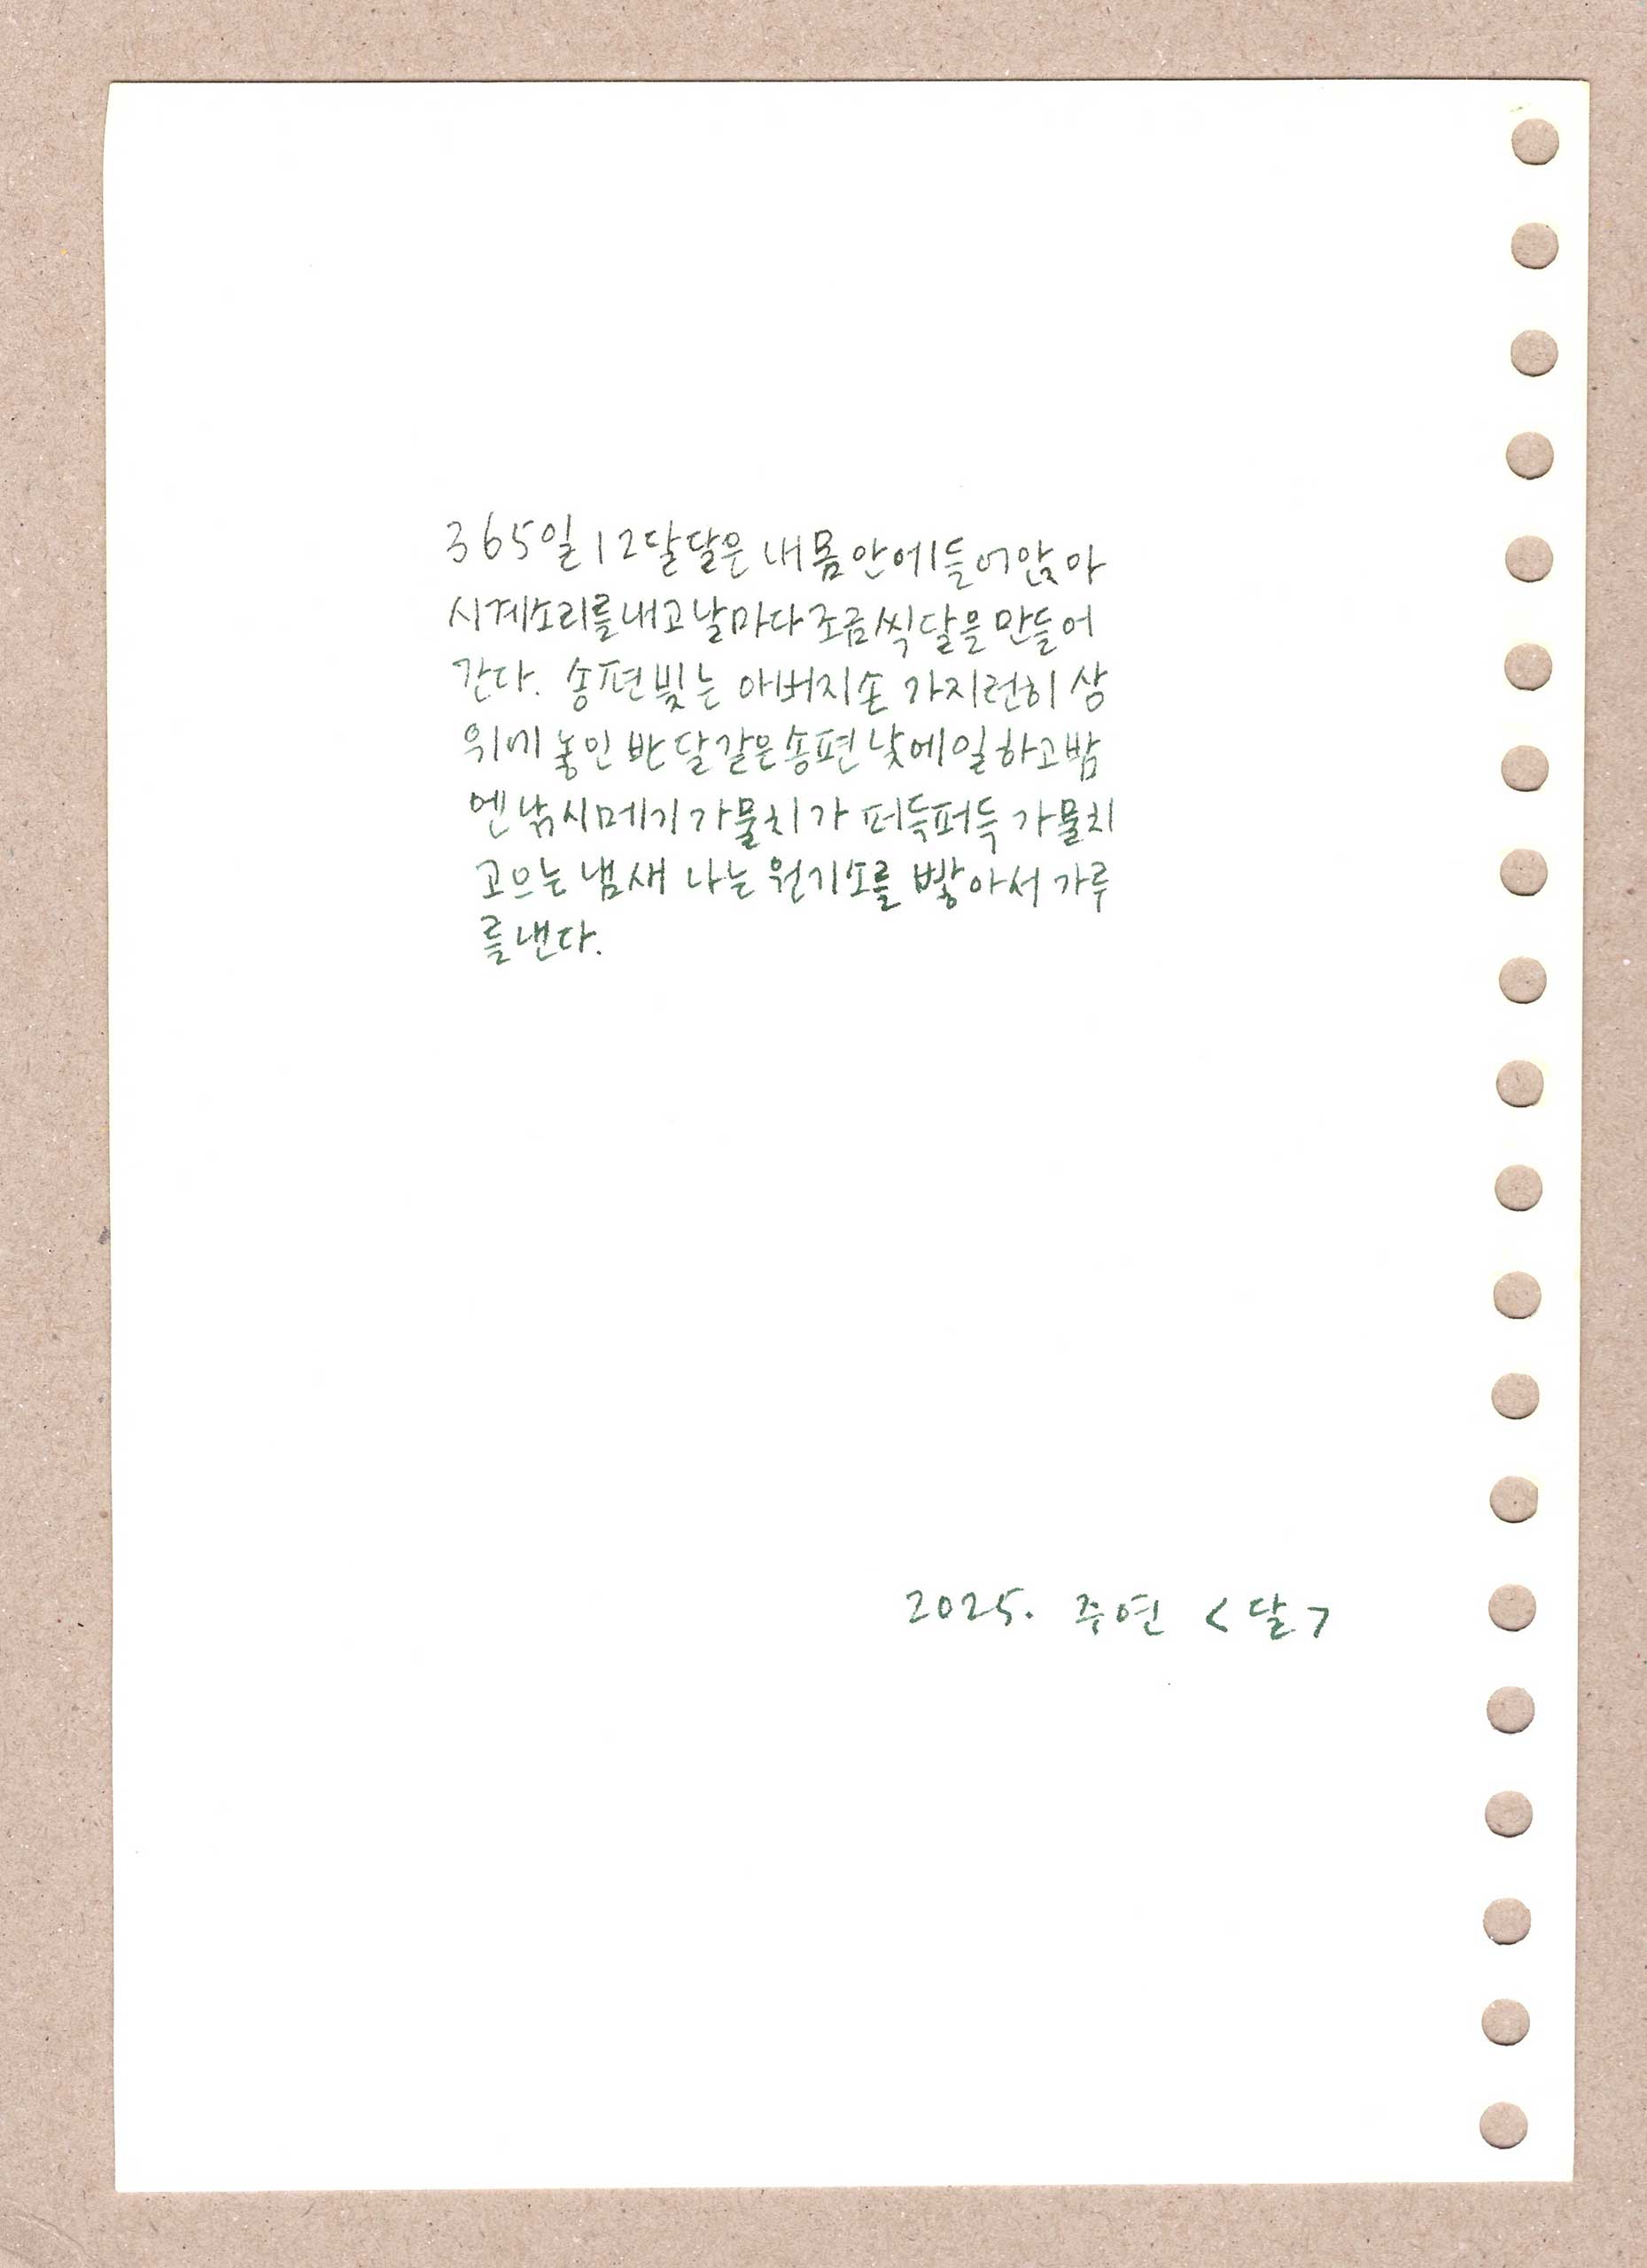 365일 12달 달은 내 몸 안에 들어앉아
시계소리를 내고 날마다 조금씩 달을 만들어
간다. 송편 빚는 아버지 손 가지런히 상
위에 놓인 반달 같은 송편 낮에 일하고 밤
엔 낚시 메기 가물치가 퍼득퍼득 가물치
고으는 냄새 나는 원기소를 빻아서 가루
를 낸다.
2025. 주연 <달>